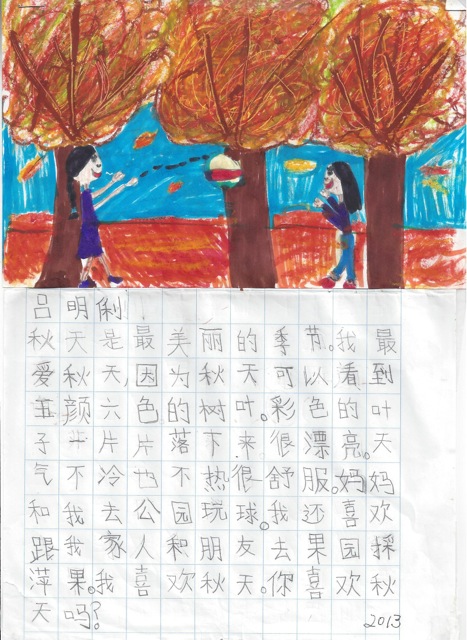 吕明俐
秋天是最美丽的季节。我最
爱秋天,因为秋天可以看到
五颜六色的树叶。彩色的叶
子一片片落下来很漂亮。天
气不冷也不热很舒服。妈妈
和我去公园玩球。我还喜欢
跟我家人和朋友去果园採
萍果。我喜欢秋天。你喜欢秋
天吗?
2013